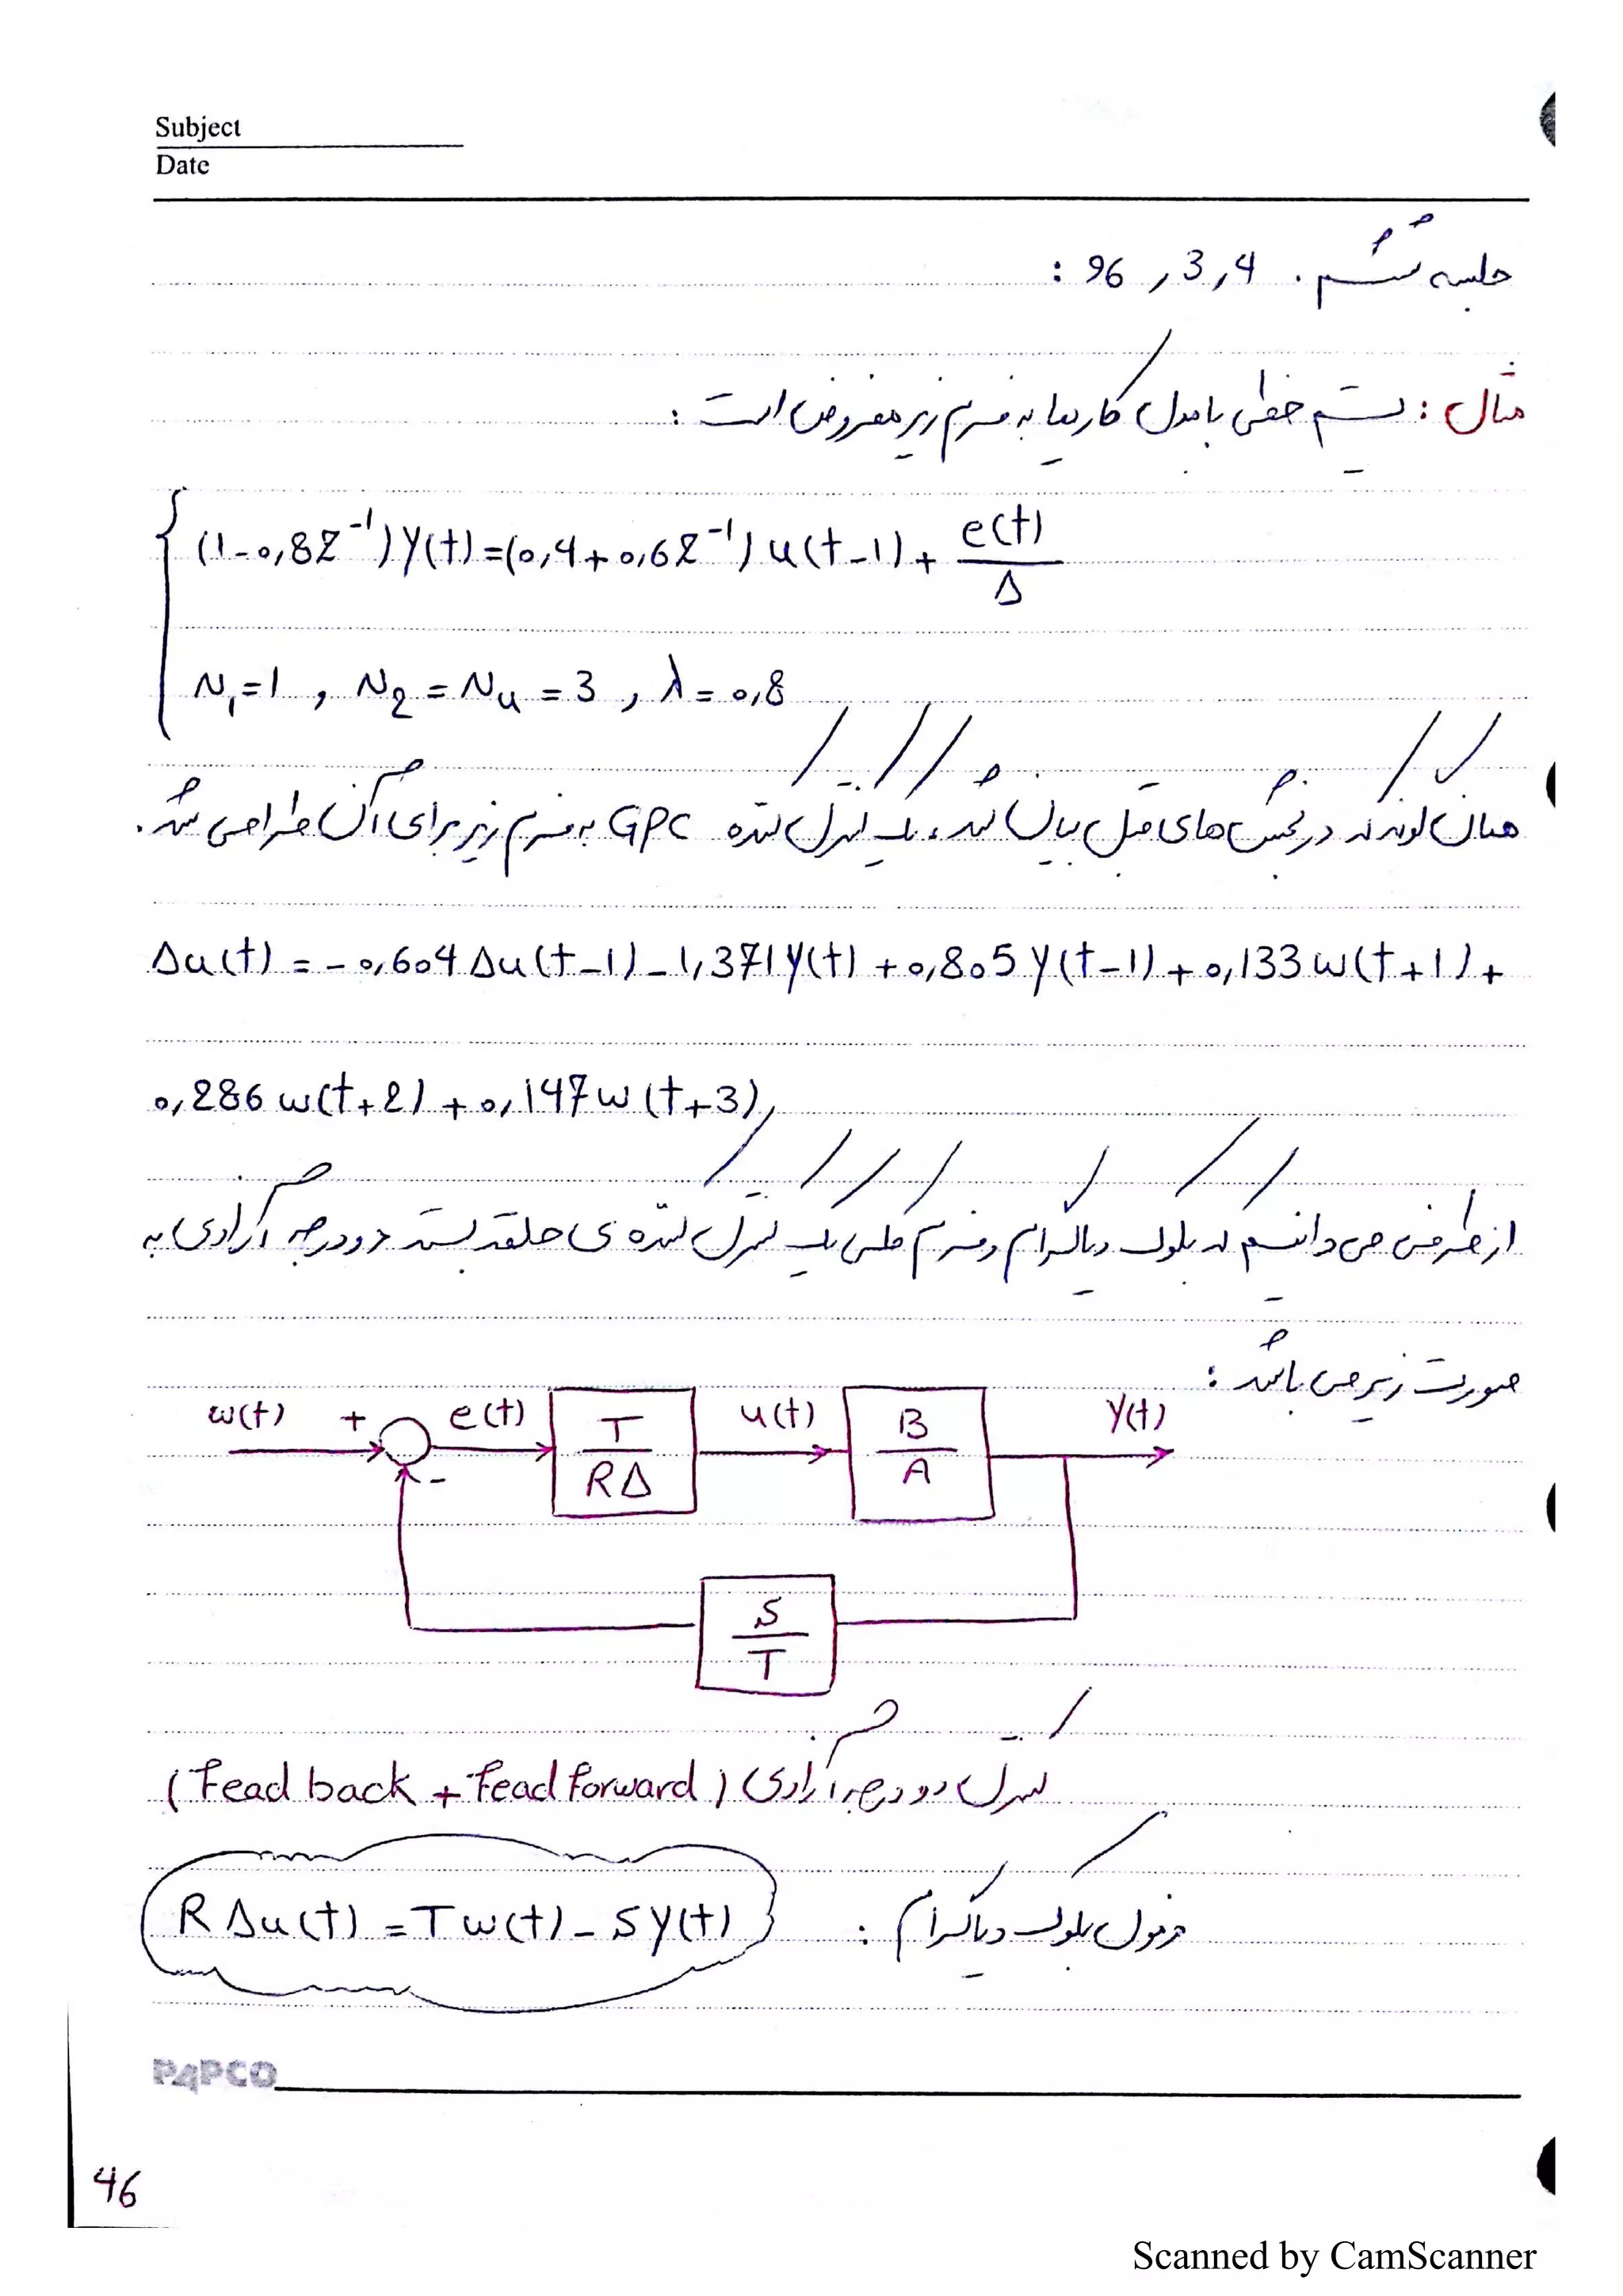 Subject
Date
جلسه ششم . 96,3,4 :
مثال : سیستم خطی با مدل کاریما به فرم زیر مفروض است :
(1-0,8Z⁻¹)y(t)=(0,4+0,6Z⁻¹)u(t-1)+ e(t)/Δ
N₁=1 , N₂ = Nu = 3 , λ=0,8
همان گونه که در بخش های قبل بیان شد ، یک کنترل کننده GPC به فرم زیر برای آن طراحی شد .
Δu(t) = -0,604Δu(t-1)-1,371y(t)+0,805y(t-1)+0,133w(t+1)+
0,286w(t+2)+0,147w(t+3)
از طرفی می دانیم که بلوک دیاگرام و فرم کلی یک کنترل کننده ی حلقه بسته دو درجه آزادی به
صورت زیر می باشد :
w(t) + e(t) T/RΔ u(t) B/A y(t)
-
S/T
کنترل دو درجه آزادی (Fead back + Fead forward)
فرمول بلوک دیاگرام : RΔu(t)=Tw(t)-Sy(t)
PAPCO
46
Scanned by CamScanner